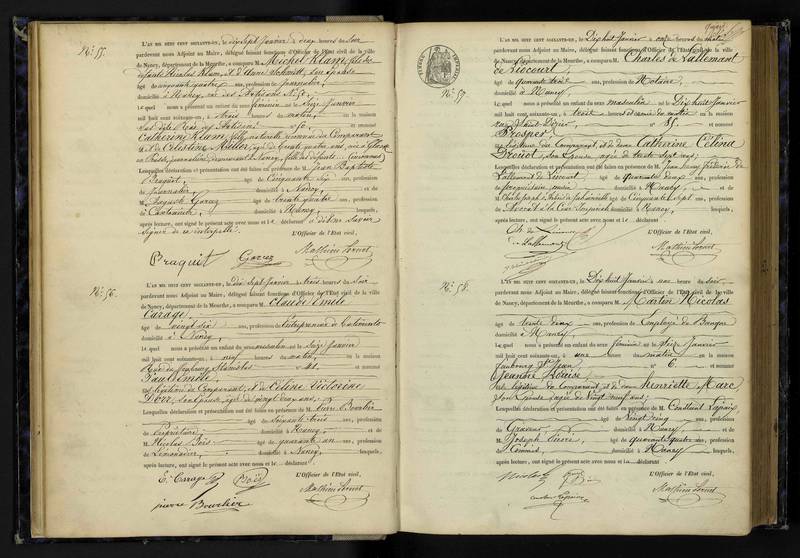 N.º 55.
L'AN MIL HUIT CENT SOIXANTE-UN, le dix Sept Janvier à deux heures du Soir
pardevant nous Adjoint au Maire, délégué faisant fonctions d'Officier de l'Etat civil de la ville
de Nancy, département de la Meurthe, a comparu M. Michel Klam, fils de
âgé de cinquante quatre ans, profession de Journalier,
domicilié à Nancy, rue des
lequel nous a présenté un enfant du sexe féminin né le Seize Janvier
mil huit cent soixante-un, à trois heures du matin, en la maison
n.º 50. et nommé
Catherine Klam, fille naturelle reconnue du Comparant
et de Célestine Müller, âgée de trente quatre ans, née à
en Prusse, journalière, demeurant à Nancy, fille des défunts
Lesquelles déclaration et présentation ont été faites en présence de M. Jean Baptiste
Braquit, âgé de Cinquante Six ans, profession
de Journalier, domicilié à Nancy, et de
M. âgé de trente quatre ans, profession
de domicilié à Nancy, lesquels,
après lecture, ont signé le présent acte avec nous et le déclarant a déclaré ne savoir
signer de ce interpellé.
L'Officier de l'Etat civil,
Braquit
N.º 56.
L'AN MIL HUIT CENT SOIXANTE-UN, le dix Sept Janvier à trois heures du Soir
pardevant nous Adjoint au Maire, délégué faisant fonctions d'Officier de l'Etat civil de la ville
de Nancy, département de la Meurthe, a comparu M. Claude Emile
Carage,
âgé de vingt six ans, profession de Entrepreneur de batiments
domicilié à Nancy,
lequel nous a présenté un enfant du sexe masculin né le Seize Janvier
mil huit cent soixante-un, à neuf heures du matin, en la maison
Rue du faubourg Stanislas n.º 41. et nommé
Paul Emile,
fils légitime du Comparant, et de Céline Victorine
Lesquelles déclaration et présentation ont été faites en présence de M. Pierre Bourlier
âgé de Soixante trois ans, profession
de Propriétaire, domicilié à Nancy, et de
M. Nicolas Boës âgé de quarante un ans, profession
de Limonadier, domicilié à Nancy, lesquels,
après lecture, ont signé le présent acte avec nous et le déclarant.
L'Officier de l'Etat civil,
E. Carage Boës
pierre Bourlier
N.º 57.
L'AN MIL HUIT CENT SOIXANTE-UN, le Dix huit Janvier à onze heures du matin
pardevant nous Adjoint au Maire, délégué faisant fonctions d'Officier de l'Etat civil de la ville
de Nancy, département de la Meurthe, a comparu M. Charles de Lallemant
de Liocourt,
âgé de quarante trois ans, profession de Notaire,
domicilié à Nancy,
lequel nous a présenté un enfant du sexe masculin né le Dix huit Janvier
mil huit cent soixante-un, à trois heures et demie du matin en la maison
rue Saint-Dizier, n.º 85. et nommé
Prosper,
fils légitime du Comparant, et de dame Catherine Célina
Drouot, son épouse, âgée de trente sept ans;
Lesquelles déclaration et présentation ont été faites en présence de M. Jean Louis Frédéric de
Lallemant de Liocourt, âgé de quarante deux ans, profession
domicilié à Nancy, et de
âgé de Cinquante Sept ans, profession
de Avocat à la Cour Impériale domicilié à Nancy, lesquels,
après lecture, ont signé le présent acte avec nous et le déclarant.
L'Officier de l'Etat civil,
N.º 58.
L'AN MIL HUIT CENT SOIXANTE-UN, le Dix huit Janvier à une heures du soir
pardevant nous Adjoint au Maire, délégué faisant fonctions d'Officier de l'Etat civil de la ville
de Nancy, département de la Meurthe, a comparu M. Martin Nicolas
âgé de trente deux ans, profession de Employé de Banque
domicilié à Nancy
lequel nous a présenté un enfant du sexe féminin né le Seize Janvier
mil huit cent soixante-un, à une heure du matin en la maison
faubourg St Jean n.º 6. et nommé
Jeanne Louise
fille légitime du Comparant et de dame henriette Marc
son Epouse âgée de Vingt neuf ans;
Lesquelles déclaration et présentation ont été faites en présence de M. Constant Lapaix
âgé de Vingt cinq ans, profession
de Graveur domicilié à Nancy et de
M. Joseph âgé de quarante quatre ans, profession
de Commis, domicilié à Nancy lesquels,
après lecture, ont signé le présent acte avec nous et le déclarant.
L'Officier de l'Etat civil,
Nicolas